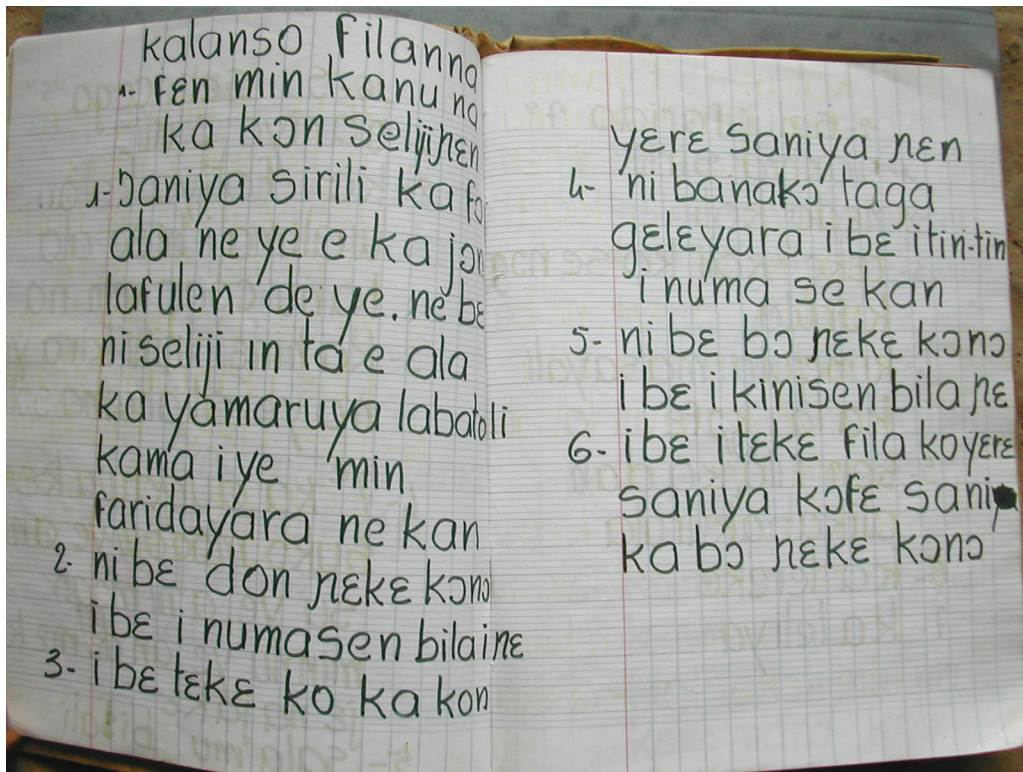 kalanso filanna
1- fɛn min kanu na
ka kɔn selijiɲɛn
1- Saniya sirili ka fɔ
ala ne ye e ka jɔn
lafulen de ye. ne bɛ
ni seliji in ta e ala
ka yamaruya labatoli
kama i ye min
faridayara ne kan
2- ni bɛ don ɲɛkɛ kɔnɔ
i bɛ i numasen bilaiɲɛ
3- i bɛ tɛkɛ ko ka kon
yɛrɛ saniya ɲɛn
4- ni banakɔ taga
gɛlɛyara i bɛ itin-tin
i numa se kan
5- ni bɛ bɔ ɲɛkɛ kɔnɔ
i bɛ i kinisen bila ɲɛ
6- i bɛ i tɛkɛ fila koyɛrɛ
saniya kɔfɛ sani
ka bɔ ɲɛkɛ kɔnɔ